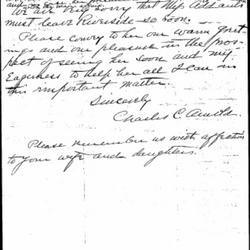 We are very sorry that Mrs.
must leave Riverside so soon.
Please convey to her our warm greet-
ings and our pleasure in the pros-
pect of seeing her soon and my
Eagerness to help her all I can in
this important matter.
Sincerely
Charles C. Arnold.
Please remember us with affection
to your wife and daughters.